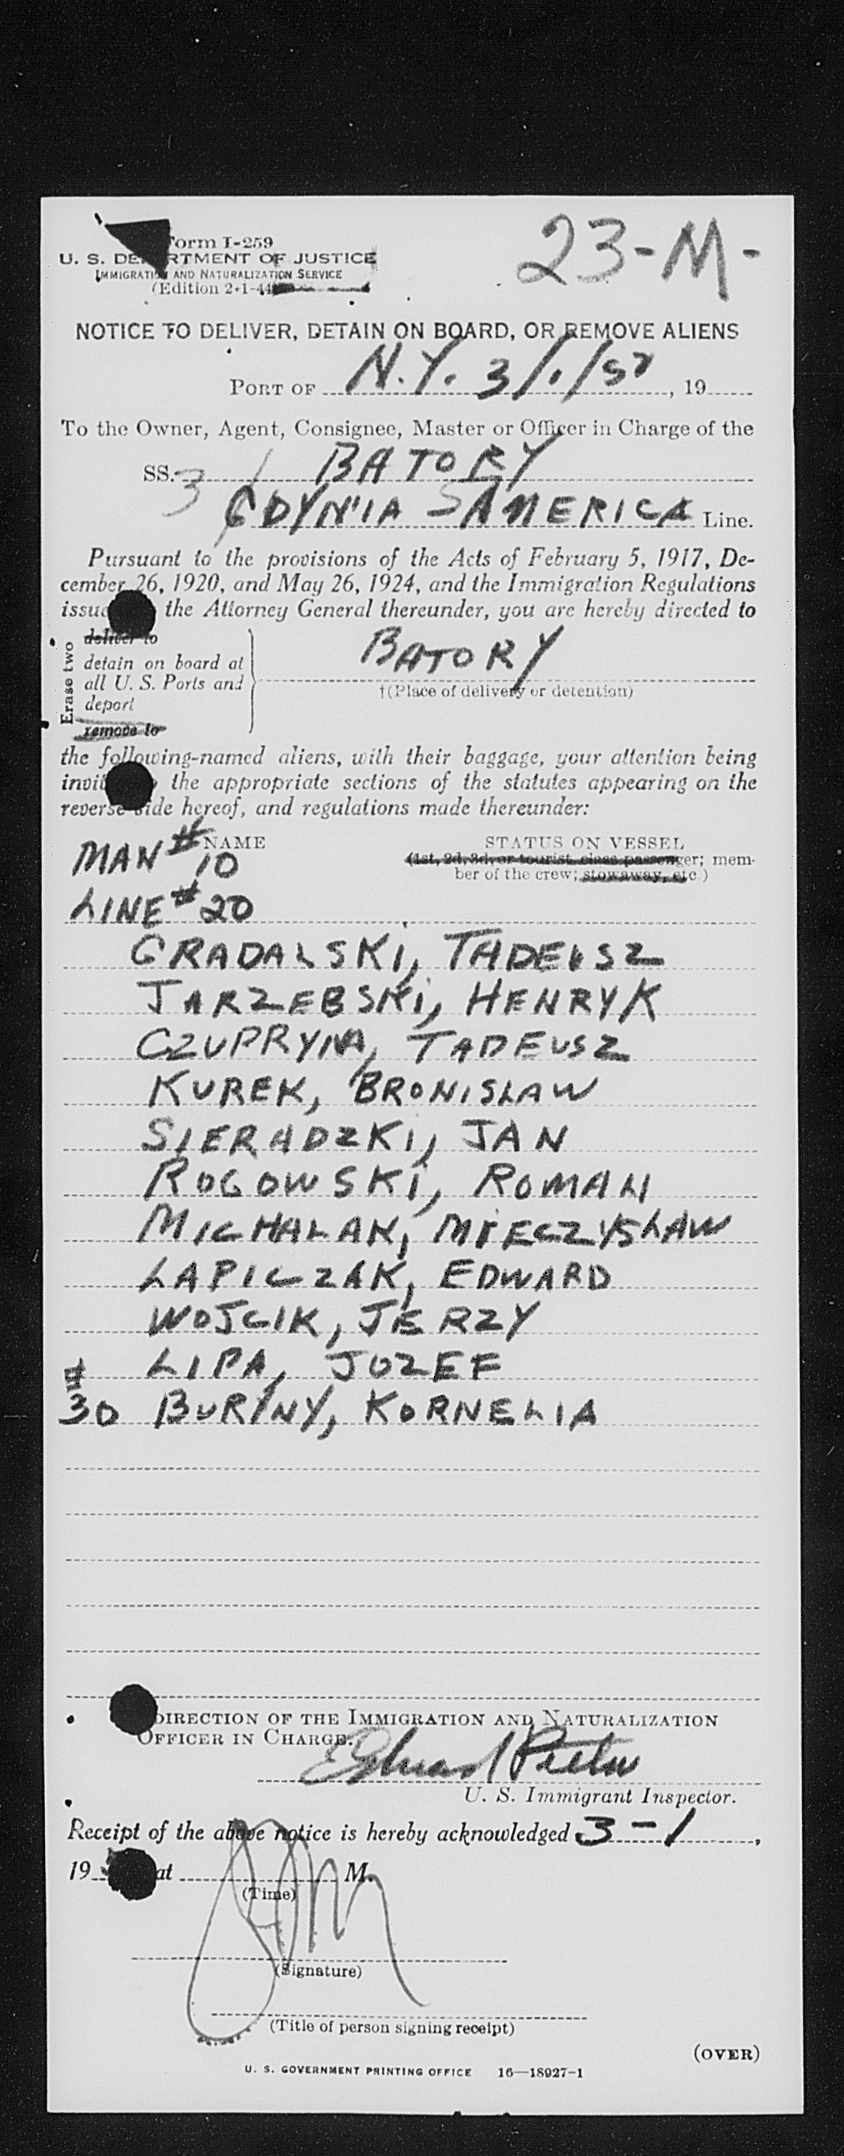 Form I-259
23-M-
U. S. DEPARTMENT OF JUSTICE
IMMIGRATION AND NATURALIZATION SERVICE
(Edition 2-1-44)
NOTICE TO DELIVER, DETAIN ON BOARD, OR REMOVE ALIENS
PORT OF N.Y. 3/1/50, 19
To the Owner, Agent, Consignee, Master or Officer in Charge of the
SS. BATORY
3 GDYNIA - AMERICA Line.
Pursuant to the provisions of the Acts of February 5, 1917, De-
cember 26, 1920, and May 26, 1924, and the Immigration Regulations
issued the Attorney General thereunder, you are hereby directed to
Erase two
deliver to
detain on board at
all U. S. Ports and
deport
remove to
BATORY
†(Place of delivery or detention)
the following-named aliens, with their baggage, your attention being
invited the appropriate sections of the statutes appearing on the
reverse side hereof, and regulations made thereunder:
NAME STATUS ON VESSEL
MAN #10 (1st, 2d, 3d, or tourist class passenger; mem-
ber of the crew; stowaway, etc.)
LINE #20
GRADALSKI, TADEUSZ
JARZEBSKI, HENRYK
CZUPRYNA, TADEUSZ
KUREK, BRONISLAW
SIERADZKI, JAN
ROGOWSKI, ROMAN
MICHALAK, MIECZYSLAW
LAPICZAK, EDWARD
WOJCIK, JERZY
LIPA, JOZEF
#30 BURYNY, KORNELIA
DIRECTION OF THE IMMIGRATION AND NATURALIZATION
OFFICER IN CHARGE.
U. S. Immigrant Inspector.
Receipt of the above notice is hereby acknowledged 3-1,
19 at M.
(Time)
(Signature)
(Title of person signing receipt)
(OVER)
U. S. GOVERNMENT PRINTING OFFICE 16—18027-1